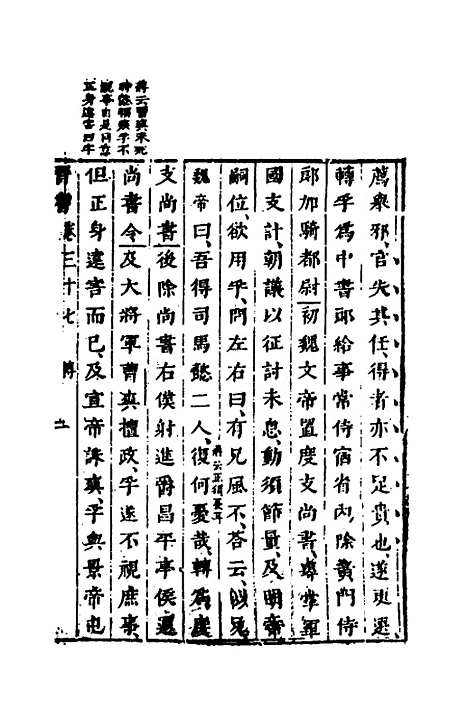 薦衆邪、官失其任、得者亦不足貴也、遂更選
轉孚爲中書郎給事常侍宿省內、除黃門侍
郎加騎都尉初魏文帝置度支尚書、專掌軍
國支計、朝議以征討未息、動須節量、及明帝
嗣位、欲用孚、問左右曰、有兄風不、荅云、似兄
魏帝曰、吾得司馬懿二人、復何憂哉、轉爲度
蔣云正須憂耳
支尚書後除尚書右僕射進爵昌平亭侯遷
尚書令及大將軍曹爽擅政、孚遂不視庶事、
但正身遠害而已、及宣帝誅爽、孚與景帝屯
晉書卷三十七 傳 五
蔣云曹爽未死
時懿稱疾孚不
視事
正身遠害四字